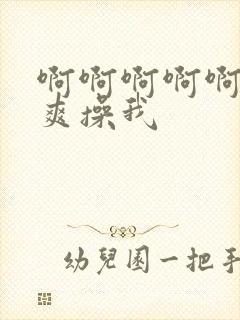 啊啊啊啊啊
爽操我
幼兒園一把手